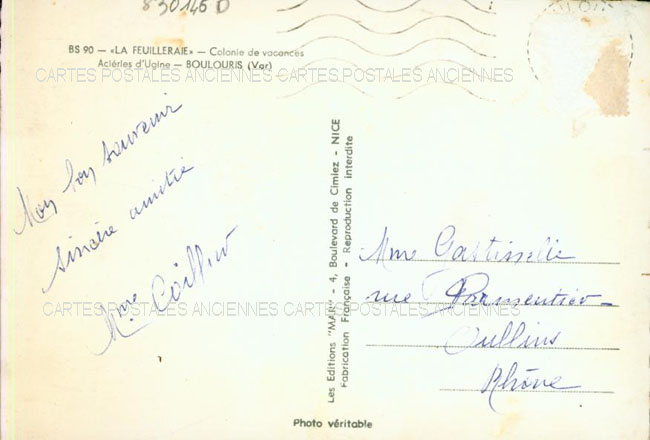 830146 D
BS 90 — «LA FEUILLERAIE» — Colonie de vacances
Aciéries d'Ugine — BOULOURIS (Var)
CARTES POSTALES ANCIENNES CARTES POSTALES ANCIENNES
Mon bon souvenir
Sincère amitié
Mme Coillier
Les Editions "MAR" - 4, Boulevard de Cimiez - NICE
Fabrication Française - Reproduction interdite
Mme Gastisselle
rue Parmentier
Oullins
Rhône
CARTES POSTALES ANCIENNES CARTES POSTALES ANCIENNES
Photo véritable